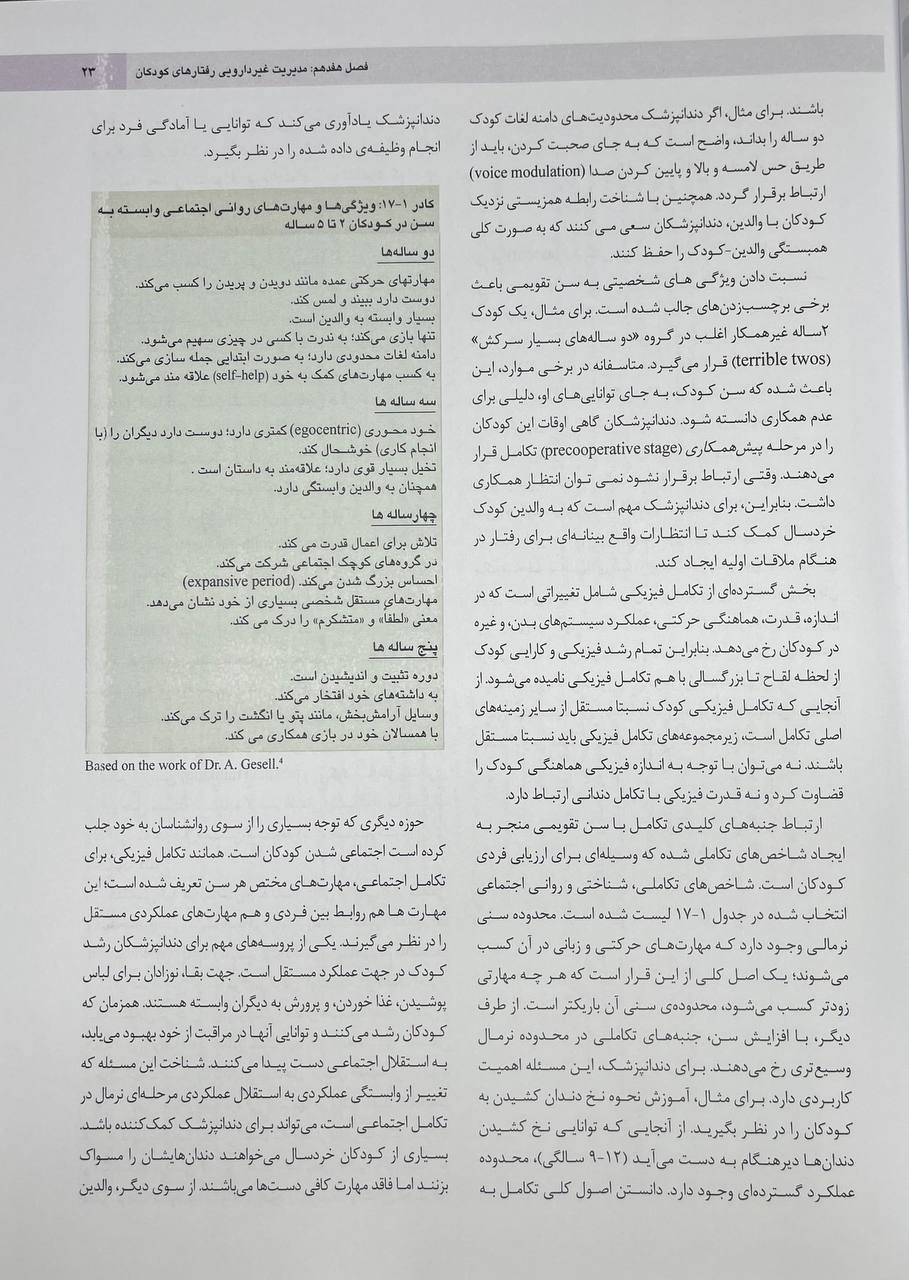 فصل هفدهم: مدیریت غیردارویی رفتارهای کودکان ۲۳
باشند. برای مثال، اگر دندانپزشک محدودیت‌های دامنه لغات کودک
دو ساله را بداند، واضح است که به جای صحبت کردن، باید از
طریق حس لامسه و بالا و پایین کردن صدا (voice modulation)
ارتباط برقرار گردد. همچنین با شناخت رابطه همزیستی نزدیک
کودکان با والدین، دندانپزشکان سعی می کنند که به صورت کلی
همبستگی والدین-کودک را حفظ کنند.
نسبت دادن ویژگی های شخصیتی به سن تقویمی باعث
برخی برچسب‌زدن‌های جالب شده است. برای مثال، یک کودک
۲ساله غیرهمکار اغلب در گروه «دو ساله‌های بسیار سرکش»
(terrible twos) قرار می‌گیرد. متاسفانه در برخی موارد، این
باعث شده که سن کودک، به جای توانایی‌های او، دلیلی برای
عدم همکاری دانسته شود. دندانپزشکان گاهی اوقات این کودکان
را در مرحله پیش‌همکاری (precooperative stage) تکامل قرار
می‌دهند. وقتی ارتباط برقرار نشود نمی توان انتظار همکاری
داشت. بنابراین، برای دندانپزشک مهم است که به والدین کودک
خردسال کمک کند تا انتظارات واقع بینانه‌ای برای رفتار در
هنگام ملاقات اولیه ایجاد کند.
بخش گسترده‌ای از تکامل فیزیکی شامل تغییراتی است که در
اندازه، قدرت، هماهنگی حرکتی، عملکرد سیستم‌های بدن، و غیره
در کودکان رخ می‌دهد. بنابراین تمام رشد فیزیکی و کارایی کودک
از لحظه لقاح تا بزرگسالی با هم تکامل فیزیکی نامیده می‌شود. از
آنجایی که تکامل فیزیکی کودک نسبتا مستقل از سایر زمینه‌های
اصلی تکامل است، زیرمجموعه‌های تکامل فیزیکی باید نسبتا مستقل
باشند. نه می‌توان با توجه به اندازه فیزیکی هماهنگی کودک را
قضاوت کرد و نه قدرت فیزیکی با تکامل دندانی ارتباط دارد.
ارتباط جنبه‌های کلیدی تکامل با سن تقویمی منجر به
ایجاد شاخص‌های تکاملی شده که وسیله‌ای برای ارزیابی فردی
کودکان است. شاخص‌های تکاملی، شناختی و روانی اجتماعی
انتخاب شده در جدول ۱-۱۷ لیست شده است. محدوده سنی
نرمالی وجود دارد که مهارت‌های حرکتی و زبانی در آن کسب
می‌شوند؛ یک اصل کلی از این قرار است که هر چه مهارتی
زودتر کسب می‌شود، محدوده‌ی سنی آن باریکتر است. از طرف
دیگر، با افزایش سن، جنبه‌های تکاملی در محدوده نرمال
وسیع‌تری رخ می‌دهند. برای دندانپزشک، این مسئله اهمیت
کاربردی دارد. برای مثال، آموزش نحوه نخ دندان کشیدن به
کودکان را در نظر بگیرید. از آنجایی که توانایی نخ کشیدن
دندان‌ها دیرهنگام به دست می‌آید (۱۲-۹ سالگی)، محدوده
عملکرد گسترده‌ای وجود دارد. دانستن اصول کلی تکامل به
دندانپزشک یادآوری می‌کند که توانایی یا آمادگی فرد برای
انجام وظیفه‌ی داده شده را در نظر بگیرد.
کادر ۱-۱۷: ویژگی‌ها و مهارت‌های روانی اجتماعی وابسته به
سن در کودکان ۲ تا ۵ ساله
دو ساله‌ها
مهارتهای حرکتی عمده مانند دویدن و پریدن را کسب می‌کند.
دوست دارد ببیند و لمس کند.
بسیار وابسته به والدین است.
تنها بازی می‌کند؛ به ندرت با کسی در چیزی سهیم می‌شود.
دامنه لغات محدودی دارد؛ به صورت ابتدایی جمله سازی می‌کند.
به کسب مهارت‌های کمک به خود (self-help) علاقه مند می‌شود.
سه ساله ها
خود محوری (egocentric) کمتری دارد؛ دوست دارد دیگران را (با
انجام کاری) خوشحال کند.
تخیل بسیار قوی دارد؛ علاقه‌مند به داستان است .
همچنان به والدین وابستگی دارد.
چهارساله ها
تلاش برای اعمال قدرت می کند.
در گروه‌های کوچک اجتماعی شرکت می‌کند.
احساس بزرگ شدن می‌کند. (expansive period)
مهارت‌های مستقل شخصی بسیاری از خود نشان می‌دهد.
معنی «لطفا» و «متشکرم» را درک می کند.
پنج ساله ها
دوره تثبیت و اندیشیدن است.
به داشته‌های خود افتخار می‌کند.
وسایل آرامش‌بخش، مانند پتو یا انگشت را ترک می‌کند.
با همسالان خود در بازی همکاری می کند.
Based on the work of Dr. A. Gesell.⁴
حوزه دیگری که توجه بسیاری را از سوی روانشناسان به خود جلب
کرده است اجتماعی شدن کودکان است. همانند تکامل فیزیکی، برای
تکامل اجتماعی، مهارت‌های مختص هر سن تعریف شده است؛ این
مهارت ها هم روابط بین فردی و هم مهارت‌های عملکردی مستقل
را در نظر می‌گیرند. یکی از پروسه‌های مهم برای دندانپزشکان رشد
کودک در جهت عملکرد مستقل است. جهت بقا، نوزادان برای لباس
پوشیدن، غذا خوردن، و پرورش به دیگران وابسته هستند. همزمان که
کودکان رشد می‌کنند و توانایی آنها در مراقبت از خود بهبود می‌یابد،
به استقلال اجتماعی دست پیدا می‌کنند. شناخت این مسئله که
تغییر از وابستگی عملکردی به استقلال عملکردی مرحله‌ای نرمال در
تکامل اجتماعی است، می‌تواند برای دندانپزشک کمک‌کننده باشد.
بسیاری از کودکان خردسال می‌خواهند دندان‌هایشان را مسواک
بزنند اما فاقد مهارت کافی دست‌ها می‌باشند. از سوی دیگر، والدین